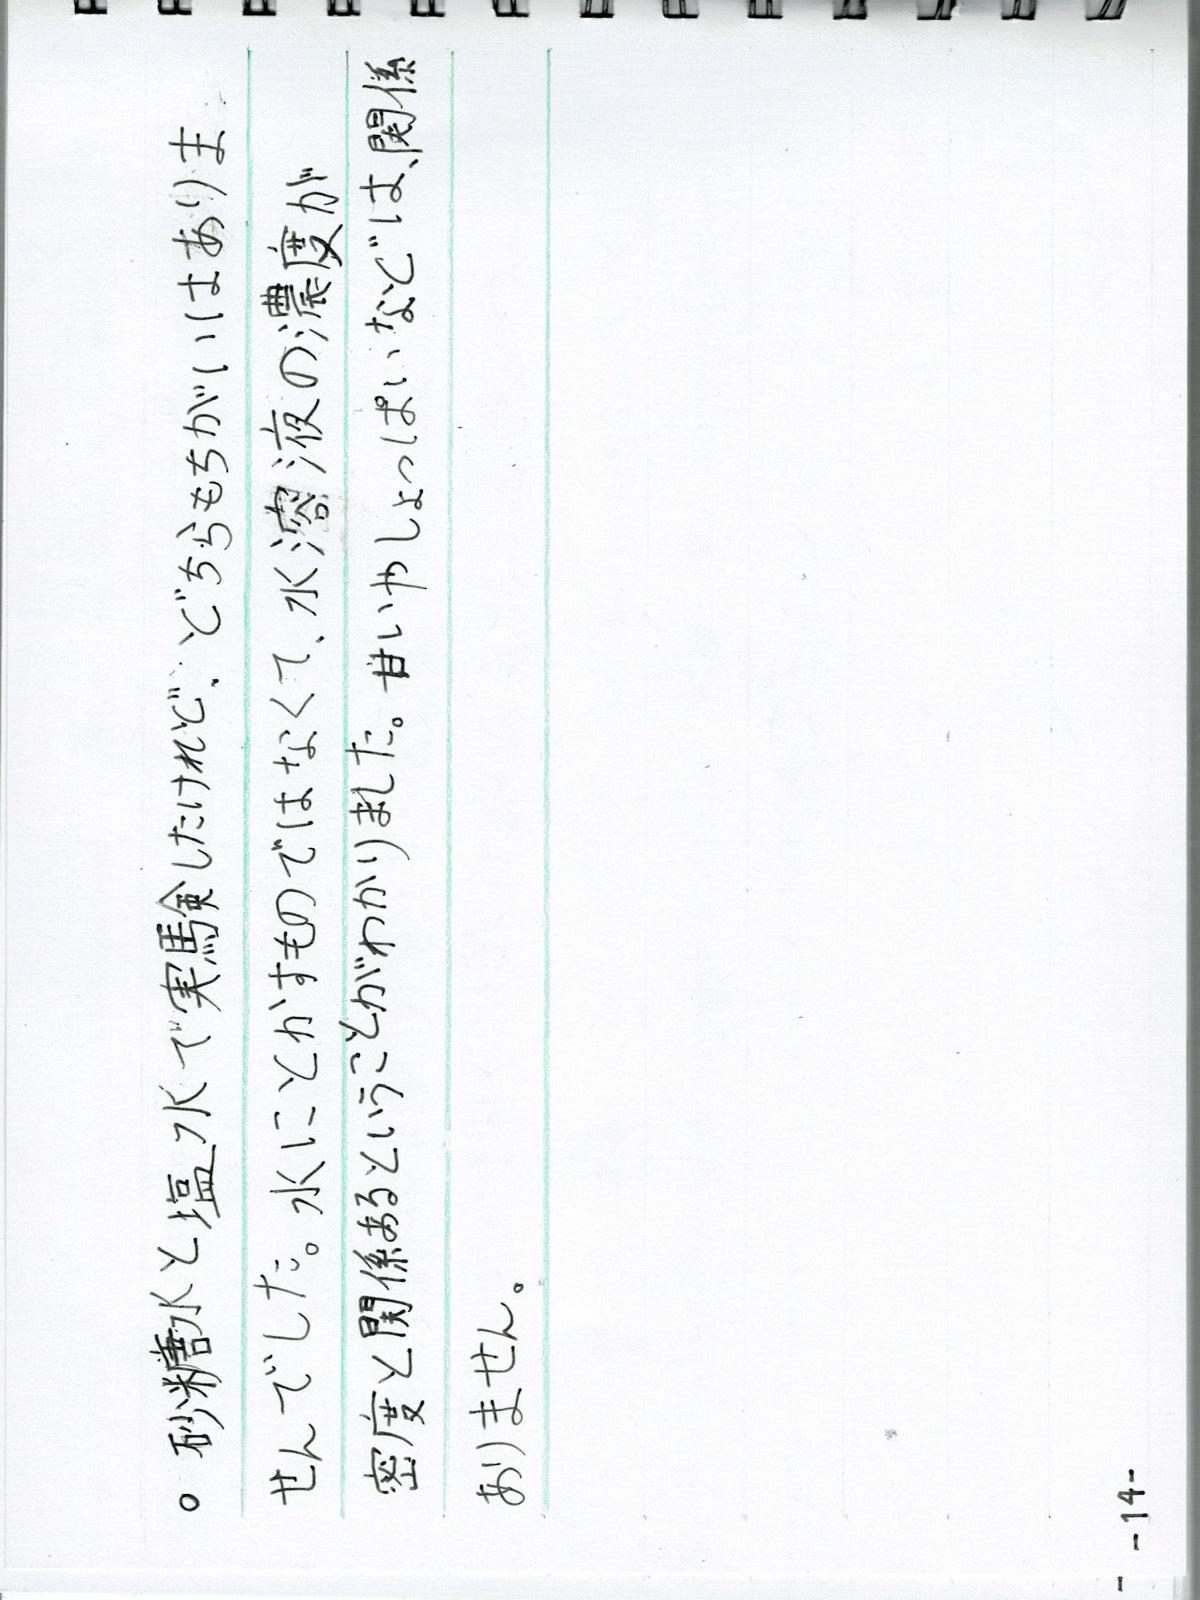 ○ 砂糖水と塩水で実験したけれど、どちらもちがいはありま
せんでした。水にとかすものではなくて、水溶液の濃度が
密度と関係あるということがわかりました。甘いやしょっぱいなどは、関係
ありません。
- -14-